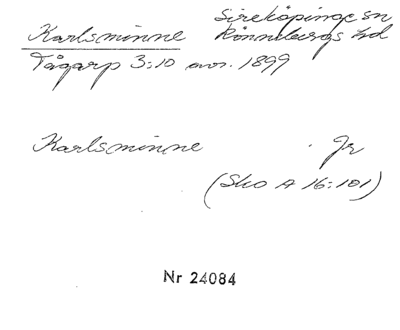 Karlsminne Sireköpinge sn
Rönnebergs hd
Tågarp 3:10 avs. 1899
Karlsminne Jr
(Sko A 16:101)
Nr 24084